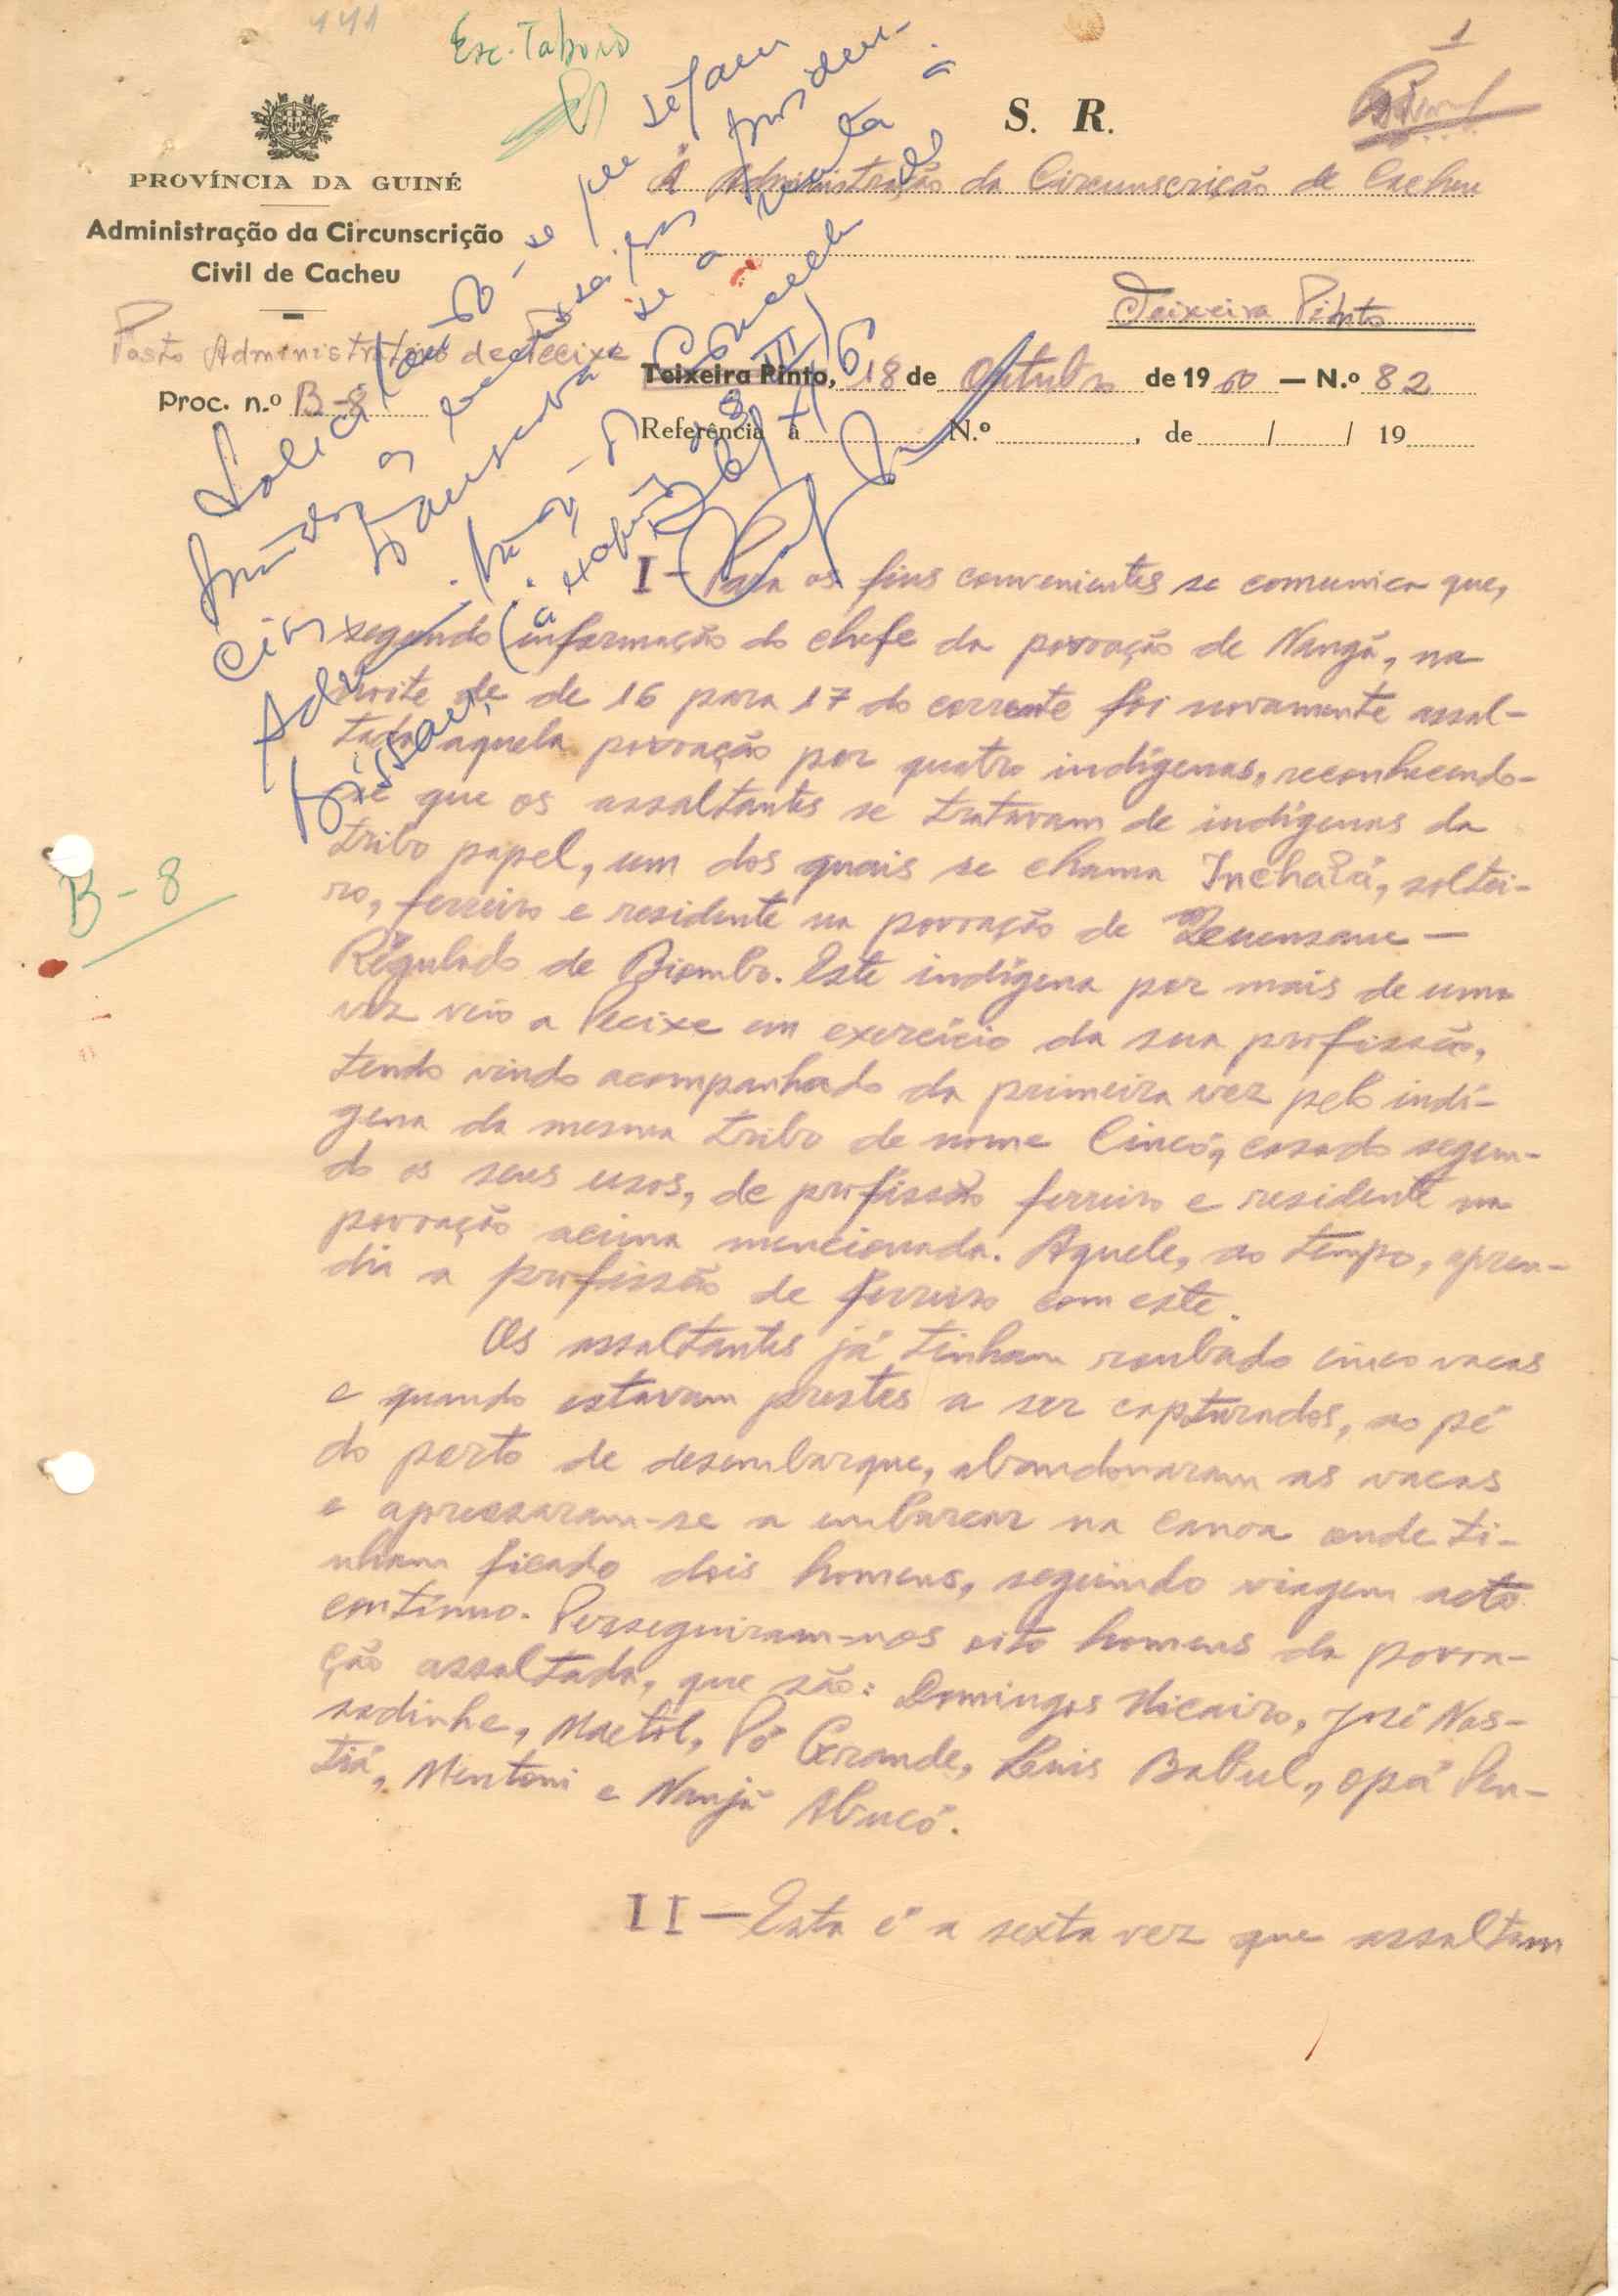 141
Esc. Taboró
1
S. R.
PROVÍNCIA DA GUINÉ
Administração da Circunscrição
Civil de Cacheu
Posto Administrativo de Pecixe
Proc. n.º B-8
À Administração da Circunscrição de Cacheu
Teixeira Pinto
Teixeira Pinto, 18 de Outubro de 1960 — N.º 82
Referência à N.º , de / / 19
Solicitou-se que sejam
Transcreva-se a nota à
Adm.
Bissau,
B-8
I - Para os fins convenientes se comunica que,
segundo informação do chefe da povoação de Nangá, na
noite de de 16 para 17 do corrente foi novamente assal-
tada aquela povoação por quatro indígenas, reconhecendo-
se que os assaltantes se tratavam de indígenas da
tribo papel, um dos quais se chama Inchalá, soltei-
ro, ferreiro e residente na povoação de —
Régulado de Biombo. Este indígena por mais de uma
vez veio a Pecixe em exercício da sua profissão,
tendo vindo acompanhado da primeira vez pelo indí-
gena da mesma tribo de nome Cincó, casado segun-
do os seus usos, de profissão ferreiro e residente na
povoação acima mencionada. Aquele, ao tempo, apren-
dia a profissão de ferreiro com este.
Os assaltantes já tinham roubado cinco vacas
e quando estavam prestes a ser capturados, ao pé
do porto de desembarque, abandonaram as vacas
e apressaram-se a embarcar na canoa onde ti-
nham ficado dois homens, seguindo viagem acto
contínuo. Perseguiram-nos oito homens da povoa-
ção assaltada, que são: Domingos Nicairo, José Nas-
sadinhe, Maetol, Pó Grande, Luis Babul, Opá Pen-
tiá, Mentoni e Nanjá Abucó.
II — Esta é a sexta vez que assaltam